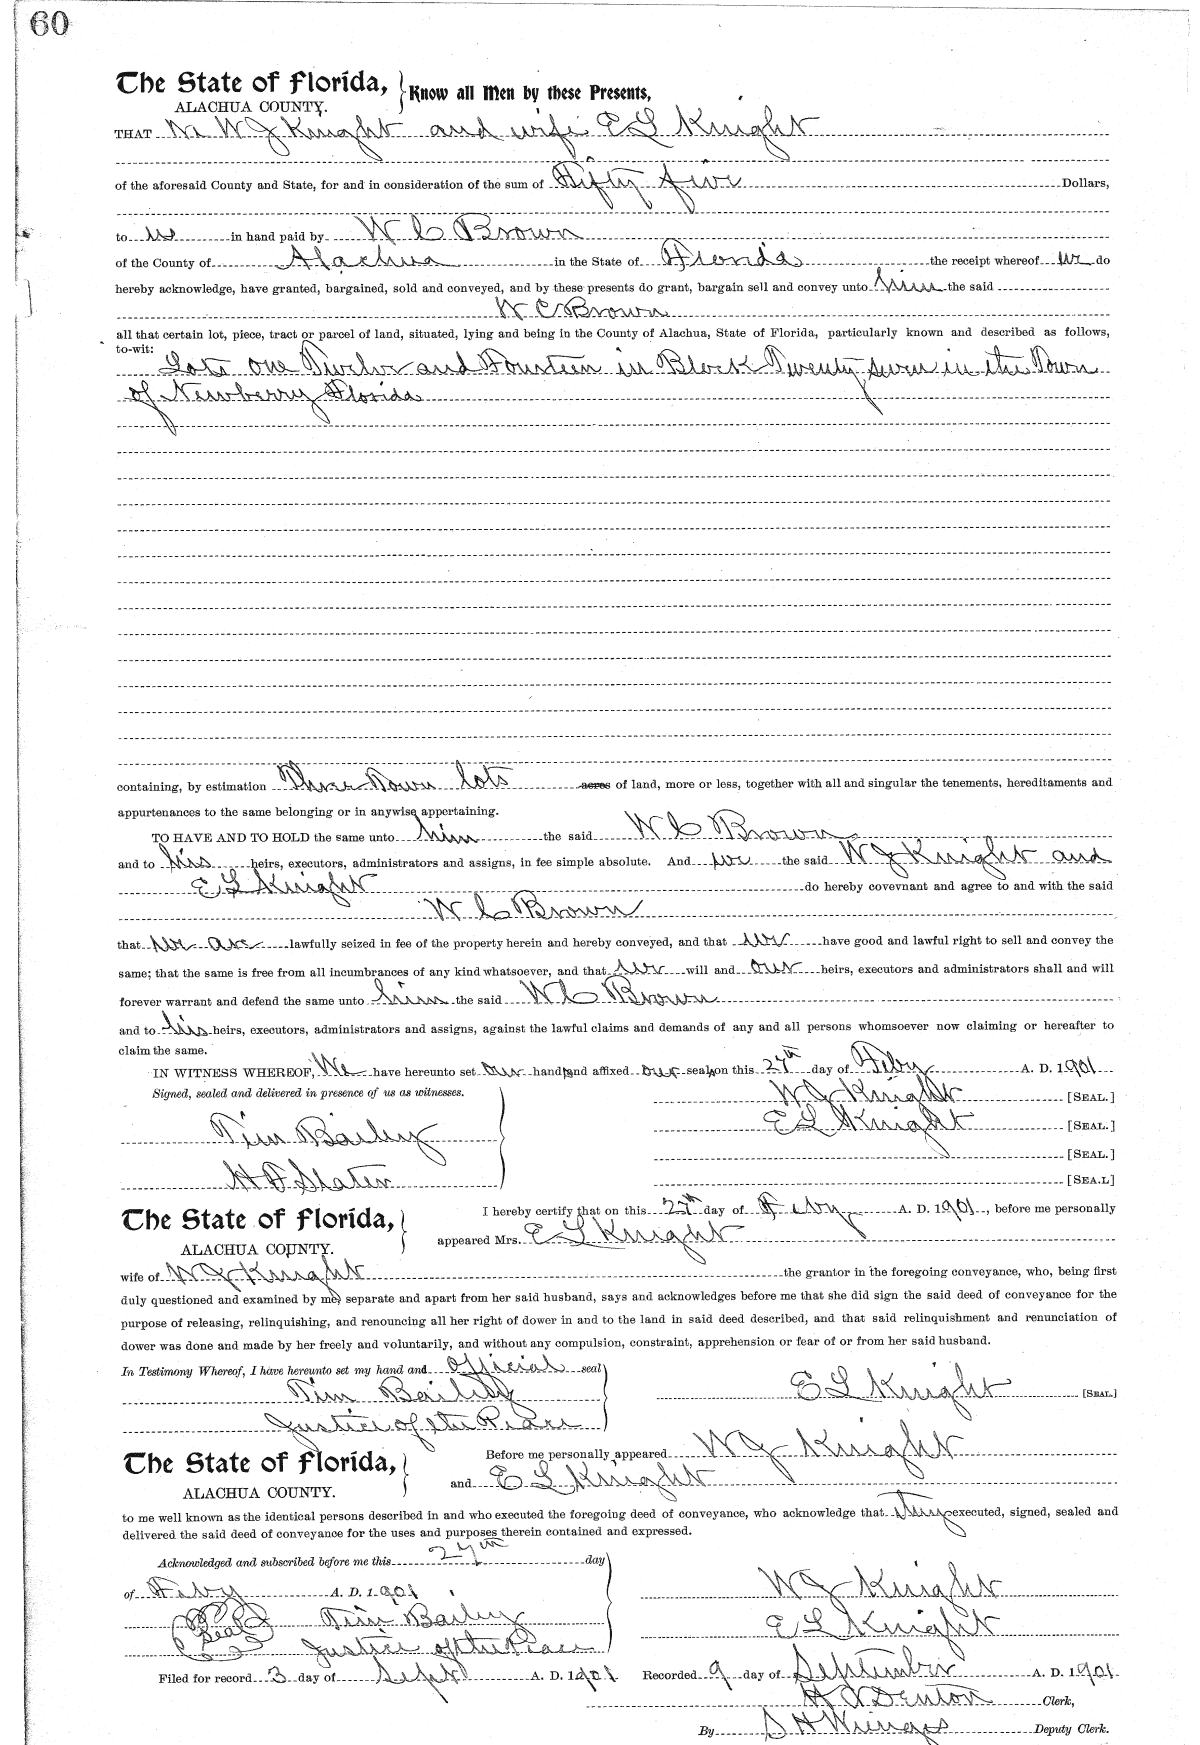 60
The State of Florida,
ALACHUA COUNTY.
Know all Men by these Presents,
THAT We W J Knight and wife E L Knight
of the aforesaid County and State, for and in consideration of the sum of Fifty five Dollars,
to us in hand paid by W C Brown
of the County of Alachua in the State of Florida the receipt whereof we do
hereby acknowledge, have granted, bargained, sold and conveyed, and by these presents do grant, bargain sell and convey unto him the said
W C Brown
all that certain lot, piece, tract or parcel of land, situated, lying and being in the County of Alachua, State of Florida, particularly known and described as follows,
to-wit: Lots one Twelve and Fourteen in Block Twenty seven in the Town
of Newberry Florida
containing, by estimation Three Town lots acres of land, more or less, together with all and singular the tenements, hereditaments and
appurtenances to the same belonging or in anywise appertaining.
TO HAVE AND TO HOLD the same unto him the said W C Brown
and to his heirs, executors, administrators and assigns, in fee simple absolute. And we the said W J Knight and
E L Knight do hereby covevnant and agree to and with the said
W C Brown
that we are lawfully seized in fee of the property herein and hereby conveyed, and that we have good and lawful right to sell and convey the
same; that the same is free from all incumbrances of any kind whatsoever, and that we will and our heirs, executors and administrators shall and will
forever warrant and defend the same unto him the said W C Brown
and to his heirs, executors, administrators and assigns, against the lawful claims and demands of any and all persons whomsoever now claiming or hereafter to
claim the same.
IN WITNESS WHEREOF, We have hereunto set our hands and affixed our seals on this 27th day of Feby A. D. 1901
Signed, sealed and delivered in presence of us as witnesses.
W J Knight [SEAL.]
E L Knight [SEAL.]
Tim Bailey
[SEAL.]
H F Slater
[SEA.L]
The State of Florida,
ALACHUA COUNTY.
I hereby certify that on this 27th day of Feby A. D. 1901, before me personally
appeared Mrs. E L Knight
wife of W J Knight the grantor in the foregoing conveyance, who, being first
duly questioned and examined by me, separate and apart from her said husband, says and acknowledges before me that she did sign the said deed of conveyance for the
purpose of releasing, relinquishing, and renouncing all her right of dower in and to the land in said deed described, and that said relinquishment and renunciation of
dower was done and made by her freely and voluntarily, and without any compulsion, constraint, apprehension or fear of or from her said husband.
In Testimony Whereof, I have hereunto set my hand and official seal
Tim Bailey
E L Knight [SEAL.]
Justice of the Peace
The State of Florida,
ALACHUA COUNTY.
Before me personally appeared W J Knight
and E L Knight
to me well known as the identical persons described in and who executed the foregoing deed of conveyance, who acknowledge that They executed, signed, sealed and
delivered the said deed of conveyance for the uses and purposes therein contained and expressed.
Acknowledged and subscribed before me this 27th day
of Feby A. D. 1901
W J Knight
Seal
Tim Bailey
E L Knight
Justice of the Peace
Filed for record 3 day of Sept A. D. 1901 Recorded 9 day of September A. D. 1901
Denton Clerk,
By S H Wienges Deputy Clerk.